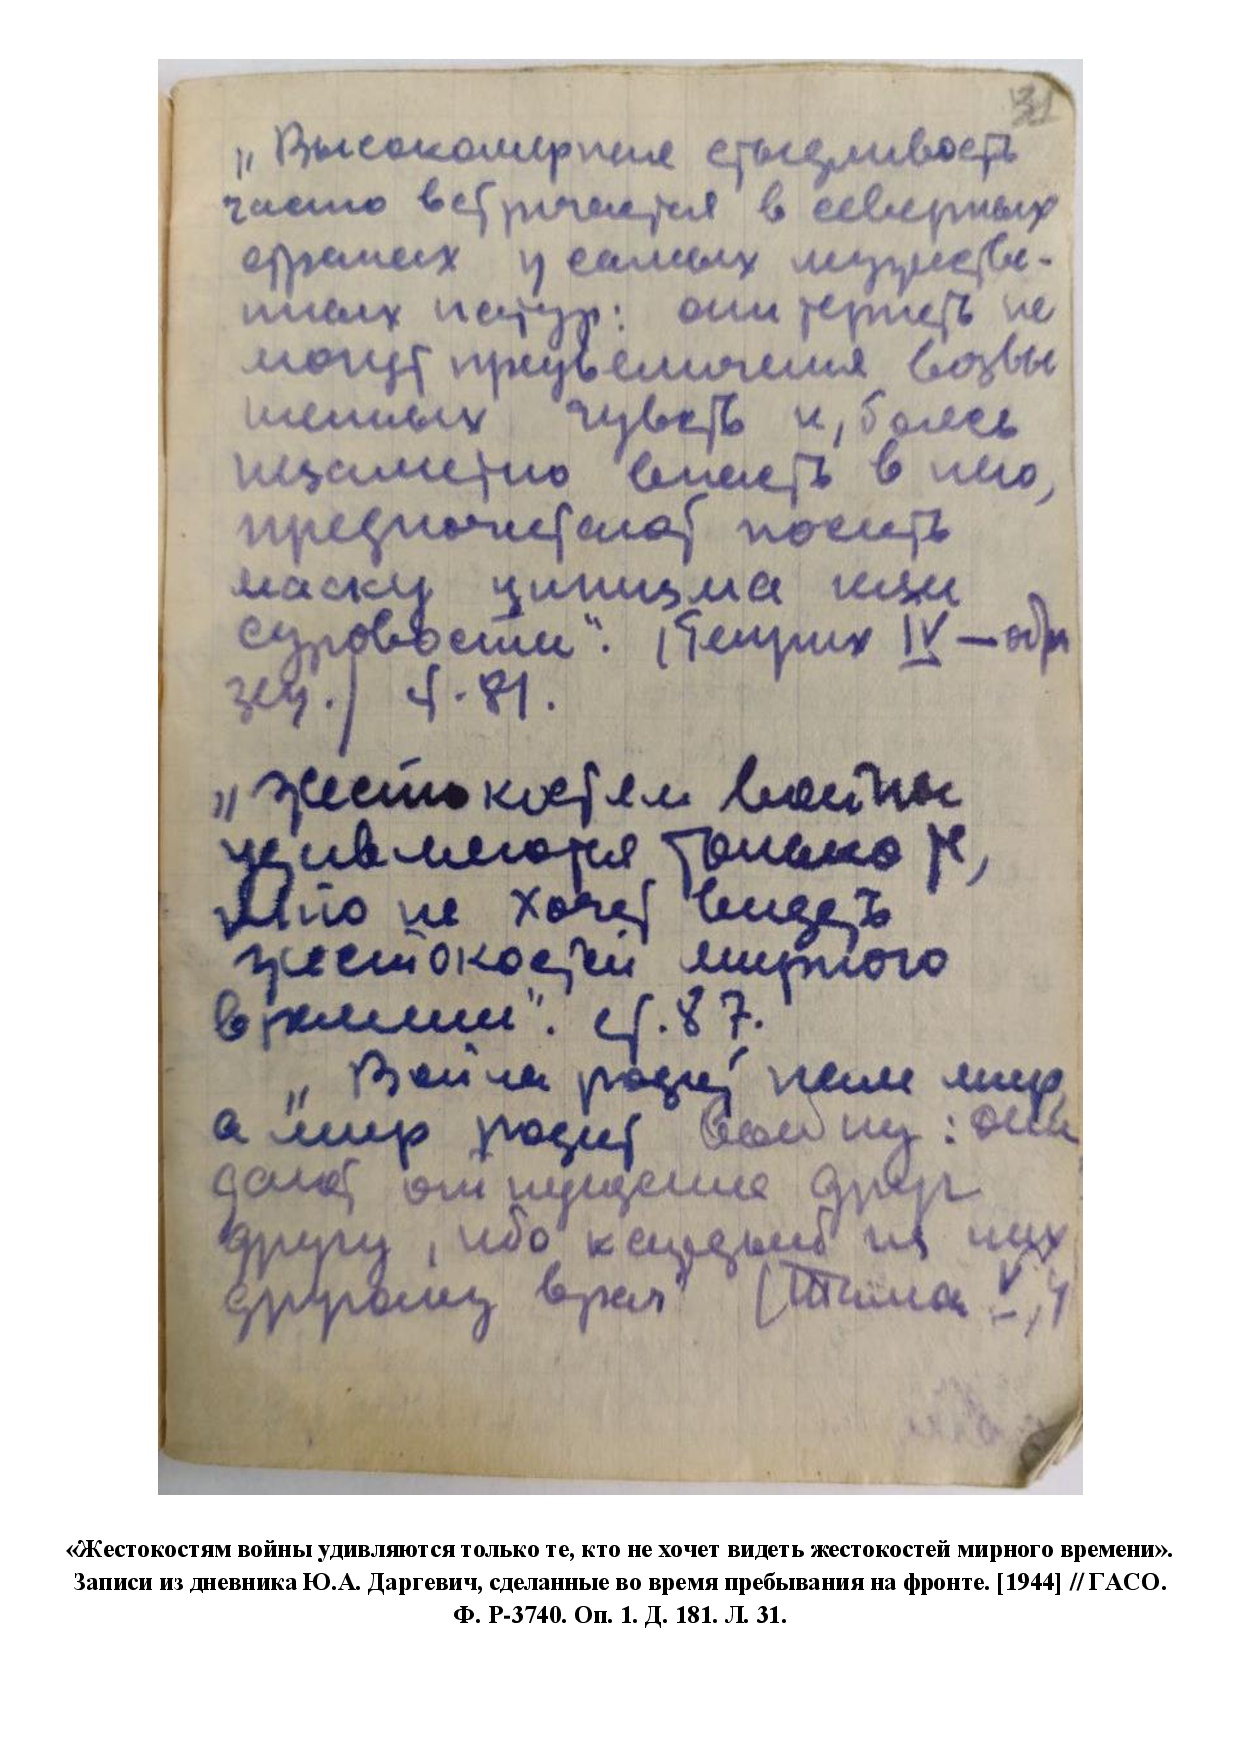 31
„Высокомерная стыдливость
часто встречается в северных
странах у самых мужестве-
нных натур: они терпеть не
могут преувеличения возвы
шенных чувств и, боясь
незаметно впасть в него,
предпочитают носить
маску цинизма или
суровости“. (Генрих IV —
ст. 81.
„Жестокостям войны
удивляются только те,
кто не хочет видеть
жестокостей мирного
времени“. ст. 87.
„Война родит нам мир,
а мир родит войну: они
дают отпущение друг
другу, ибо каждый из них
другому врач“ V
«Жестокостям войны удивляются только те, кто не хочет видеть жестокостей мирного времени».
Записи из дневника Ю.А. Даргевич, сделанные во время пребывания на фронте. [1944] // ГАСО.
Ф. Р-3740. Оп. 1. Д. 181. Л. 31.